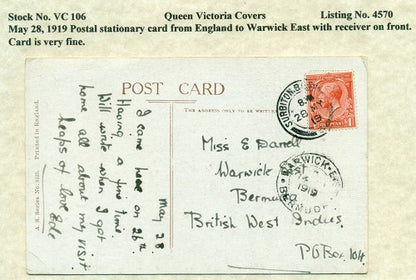 Stock No. VC 106 Queen Victoria Covers Listing No. 4570
May 28, 1919 Postal stationary card from England to Warwick East with receiver on front.
Card is very fine.
POST CARD
THE ADDRESS ONLY TO BE WRITTEN
Printed in England.
A. R. Series No.
May 28
I came here on 26th.
Having a fine time.
Will write when I get
home all about my visit
heaps of love
SURBITON
28 MY
19
1
Miss E Darrell
Warwick
Bermuda
British West Indies
P O Box 104
WARWICK-EAST
1919
BERMUDA